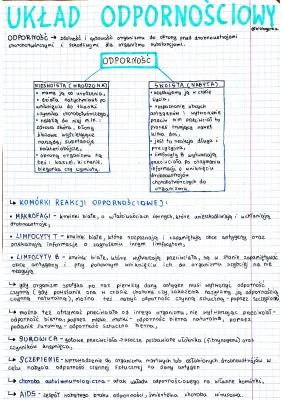 UKŁAD ODPORNOŚCIOWY
ODPORNOŚĆ → zdolność i gotowość organizmu do obrony przed drobnoustrojami
chorobotwórczymi i szkodliwymi dla organizmu substancjami.
ODPORNOŚĆ
NIESWOISTA (WRODZONA)
• mamy ją od urodzenia,
• działa natychmiast po
wniknięciu do tkanki
czynnika chorobotwórczego,
• należą do niej m.in.:
zdrowa skóra, błony
śluzowe wyścielające
narządy, substancje
bakteriobójcze,
• obroną organizmu są
też: kaszel, kichanie,
biegunka czy wymioty.
SWOISTA (NABYTA)
• uzyskujemy ją w czasie
życia,
• rozpoznanie obcych
antygenów i wytworzenie
przeciw nim przeciwciał to
proces trwający nawet
kilka dni,
• jest to reakcja długa i
precyzyjna,
• limfocyty B wytwarzają
przeciwciała po otrzymaniu
informacji o wniknięciu
drobnoustrojów
chorobotwórczych do
organizmu.
↳ KOMÓRKI REAKCJI ODPORNOŚCIOWEJ:
• MAKROFAGI - krwinki białe, o właściwościach żernych, które unieszkodliwiają i wchłaniają
drobnoustroje,
• LIMFOCYTY T - krwinki białe, które rozpoznają i zapamiętują obce antygeny oraz
przekazują informacje o zagrożeniu innym limfocytom,
• LIMFOCYTY B - krwinki białe, które wytwarzają przeciwciała, są w stanie zapamiętywać
obce antygeny i przy ponownym wniknięciu ich do organizmu szybciej na nie
reagują
↳ gdy organizm spotyka po raz pierwszy dany antygen musi wytworzyć odporność
czynną (gdy powstanie ona w czasie choroby czy zakażenia nazywamy ją odpornością
czynną naturalną), można też nabyć odporność czynną sztuczną - poprzez szczepionki
↳ można też otrzymać przeciwciała od innego organizmu, nie wytwarzając przeciwciał -
odporność bierna, poprzez mleko matki - odporność bierna naturalna, poprzez
podanie surowicy - odporność sztuczna bierna,
↳ SUROWICA - gotowe przeciwciała - osocze pozbawione włóknika (fibrynogenu) oraz
czynników krzepnięcia,
↳ SZCZEPIENIE - wprowadzenie do organizmu martwych lub osłabionych drobnoustrojów w
celu nabycia odporności czynnej sztucznej na dany antygen
↳ choroba autoimmunologiczna - atak układu odpornościowego na własne komórki,
↳ AIDS - zespół nabytego braku odporności, śmiertelna choroba wirusowa.